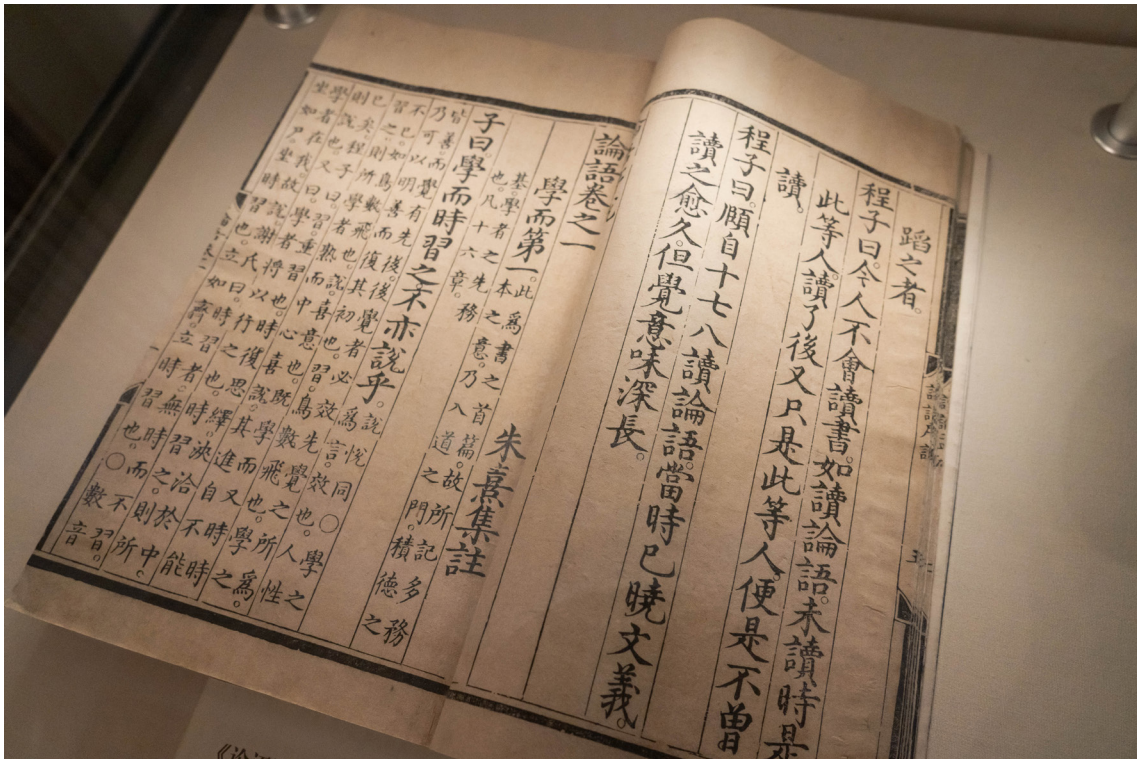 蹈之者。
程子曰。今人不會讀書。如讀論語。未讀時是
此等人。讀了後又只是此等人。便是不曾
讀。
程子曰。頤自十七八讀論語。當時已曉文義。
讀之愈久。但覺意味深長。
論語卷之一
朱熹集註
學而第一。此為書之首篇。故所記多務
本之意。乃入道之門。積德之
基。學者之先務
也。凡十六章。
子曰學而時習之不亦說乎。說悅同○學之
為言。效也。人性
皆善。而覺有先後。後覺者必效先覺之所為。
乃可以明善而復其初也。習。鳥數飛也。學之
不已。如鳥數飛也。說。喜意也。既學而又時時
習之。則所學者熟。而中心喜說。其進自不能
已矣。程子曰。習。重習也。時復思繹。浹洽於中。
則說也。又曰。學者將以行之也。時習之。則所
學者在我。故說。謝氏曰。時習者。無時而不習。
坐如尸。坐時習也。立如齊。立時習也。○數音